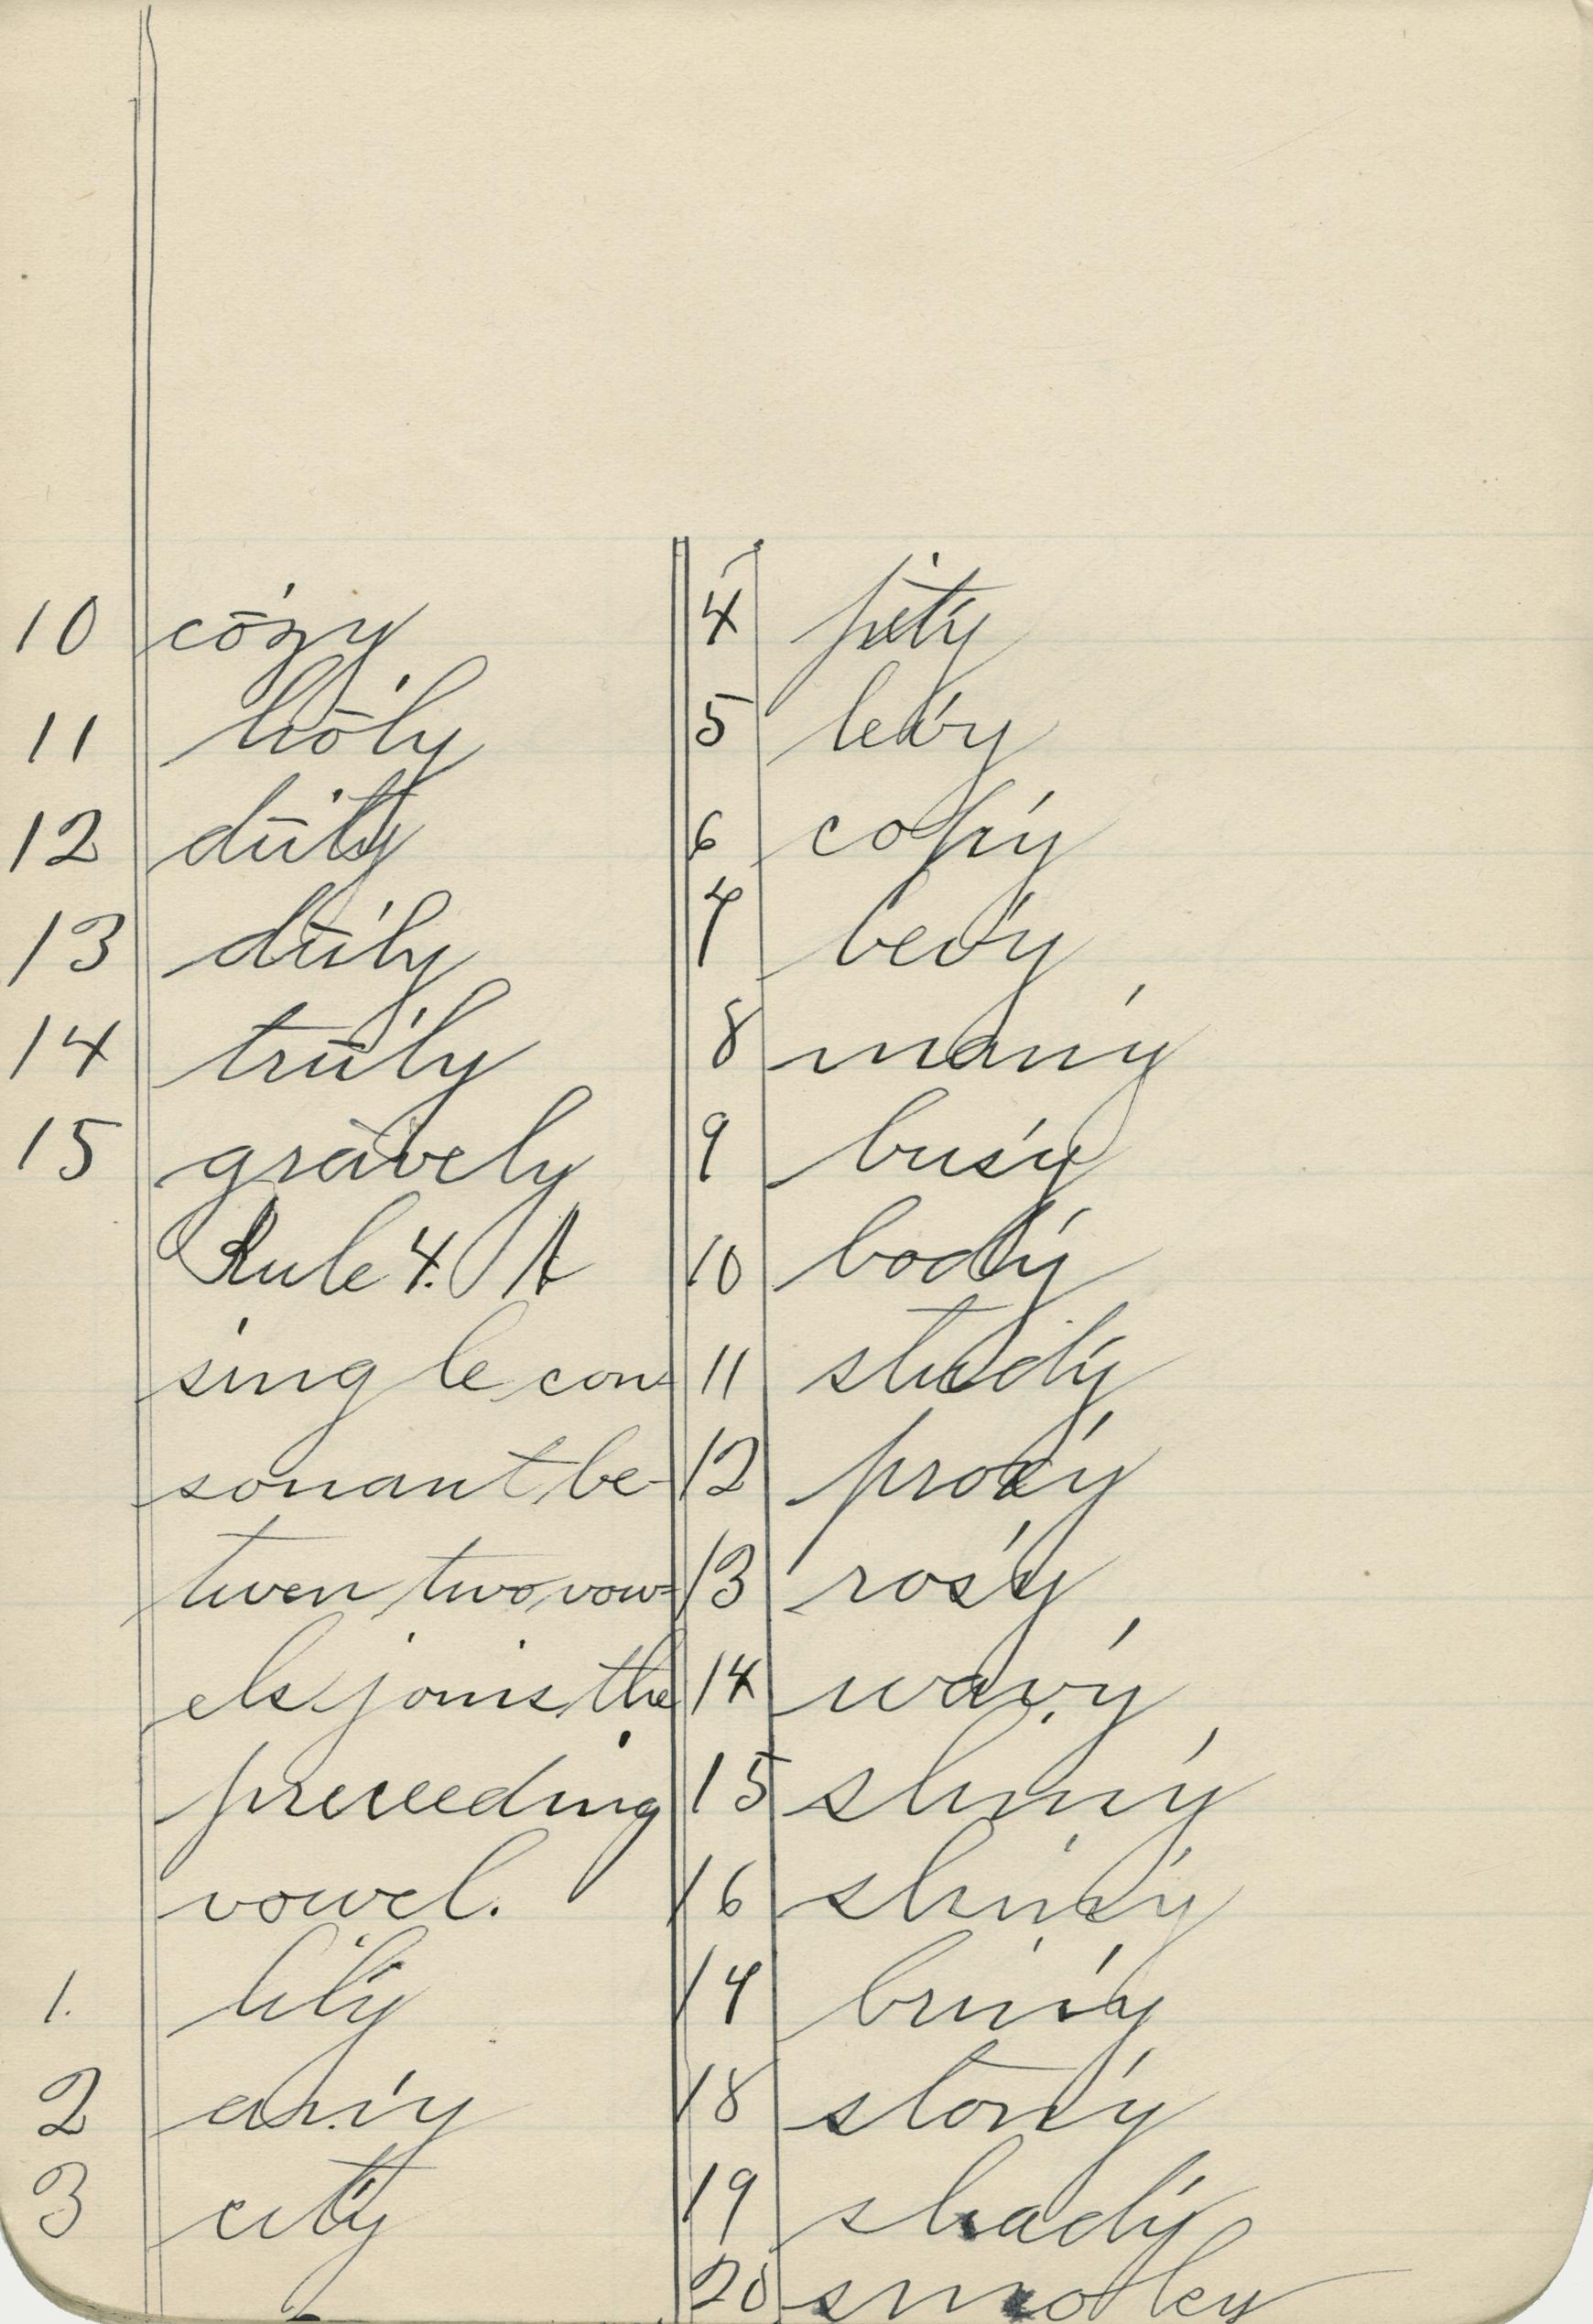 10 cō'zy
11 hō'ly
12 dū'ty
13 dū'ly
14 trū'ly
15 grāvely
Rule 4. A
single con-
sonant be-
twen two vow-
els joins the
preceeding
vowel.
1. lil'y
2 an'y
3 cit'y
4 pit'y
5 lev'y
6 cop'y
7 bev'y
8 man'y
9 bus'y
10 bod'y
11 stud'y
12 prox'y
13 ros'y
14 wav'y
15 slim'y
16 shin'y
17 brin'y
18 ston'y
19 shad'y
20 smokey